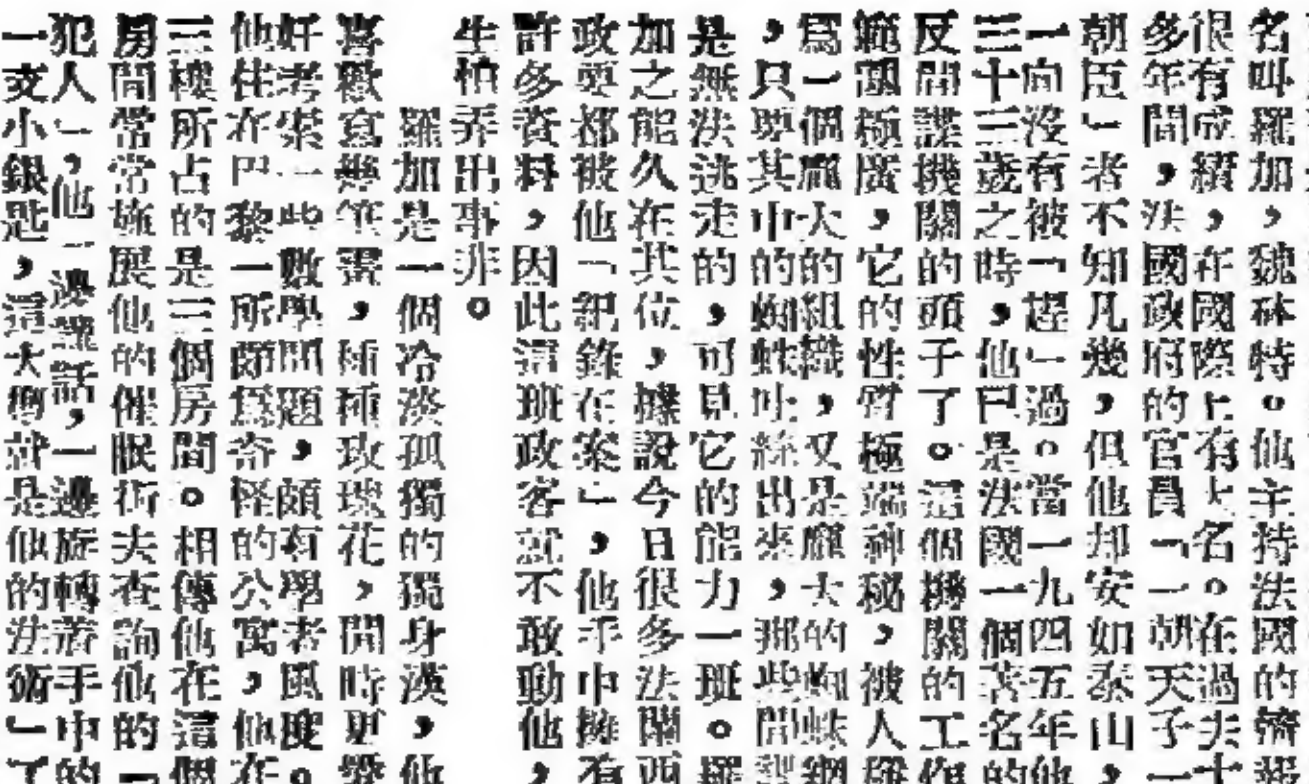 名叫羅加,魏砵特。他主持法國的
很有成績,在國際上有大名。在過去十
多年間,法國政府的官員「一朝天子一
朝臣」者不知凡幾,但他却安如泰山,
一向沒有被「趕」過。當一九四五年他
三十三歲之時,他已是法國一個著名的
反間諜機關的頭子了。這個機關的工作
範圍極廣,它的性質極端神秘,被人稱
爲一個龐大的組織,又是龐大的蜘蛛網
,只要其中的蜘蛛吐絲出來,那些間諜
是無法逃走的,可見它的能力一斑。羅
加之能久在其位,據說今日很多法蘭西
政要都被他「紀錄在案」,他手中擁有
許多資料,因此這班政客就不敢動他,
生怕弄出事非。
羅加是一個冷淡孤獨的獨身漢,他
喜歡寫幾筆畫,種種玫瑰花,閒時更愛
一些數學問題,頗有學者風度。
他住在巴黎一所頗爲奇怪的公寓,他在
三樓所占的是三個房間。相傳他在這個
房間常常施展他的催眠術去查詢他的「
犯人」,他一邊說話,一邊旋轉着手中的
一支小銀匙,這大概就是他的法術」了